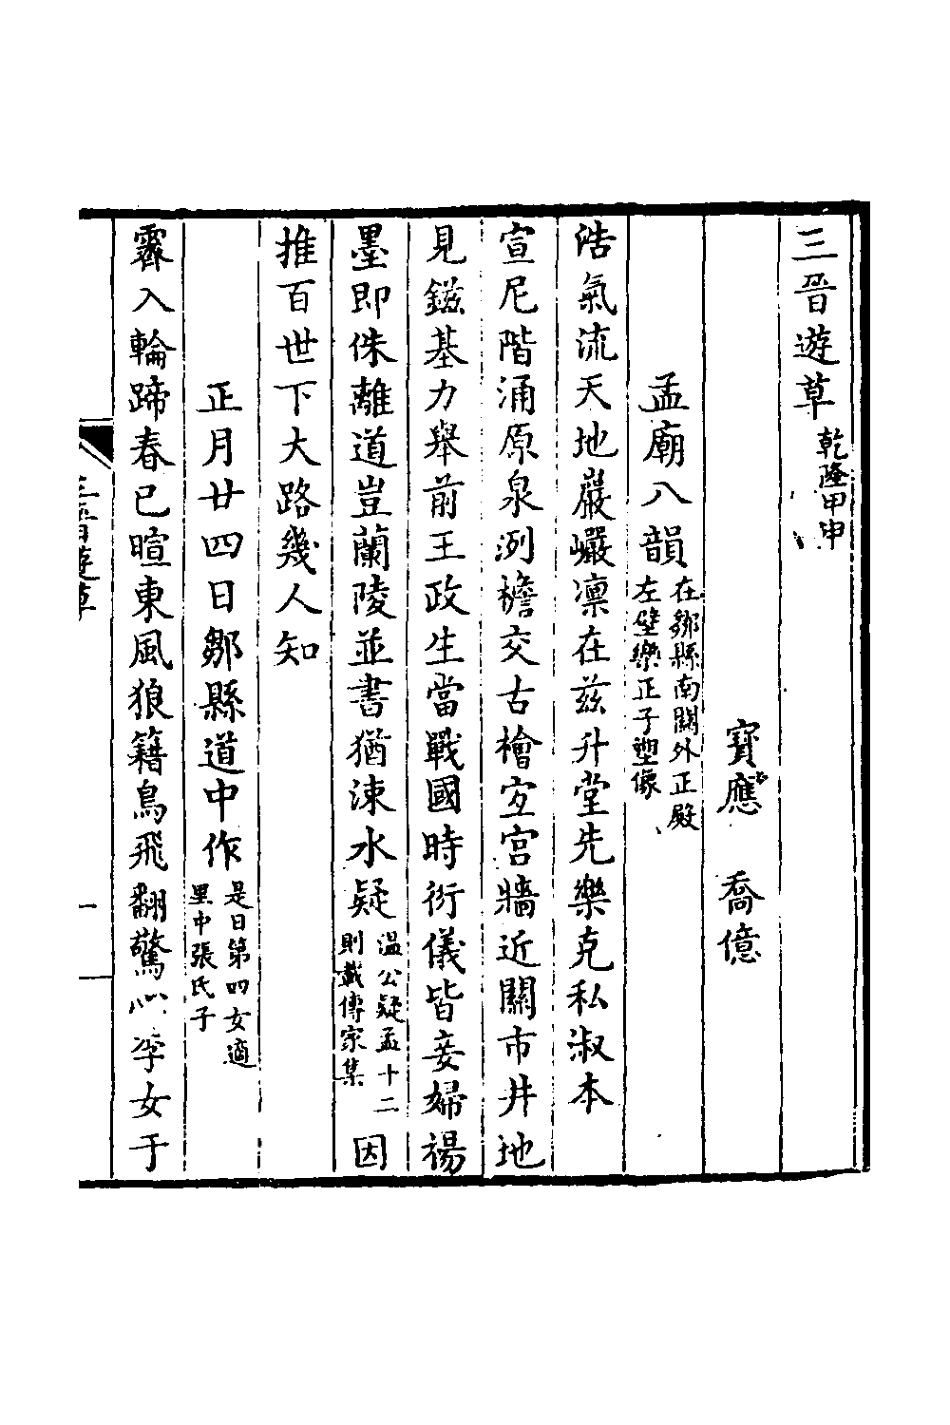 三晉遊草乾隆甲申
寶應 喬億
孟廟八韻在鄒縣南關外正殿左壁樂正子塑像
浩氣流天地巖巖凛在兹升堂先樂克私淑本
宣尼階涌原泉洌檐交古檜宐宫牆近關市井地
見鎡基力舉前王政生當戰國時衍儀皆妾婦楊
墨即侏離道豈蘭陵並書猶涑水疑温公疑孟十二則載傳家集因
推百世下大路幾人知
正月廿四日鄒縣道中作是日第四女適里中張氏子
霽入輪蹄春已暄東風狼籍鳥飛翻驚心季女于
三晉遊草
一